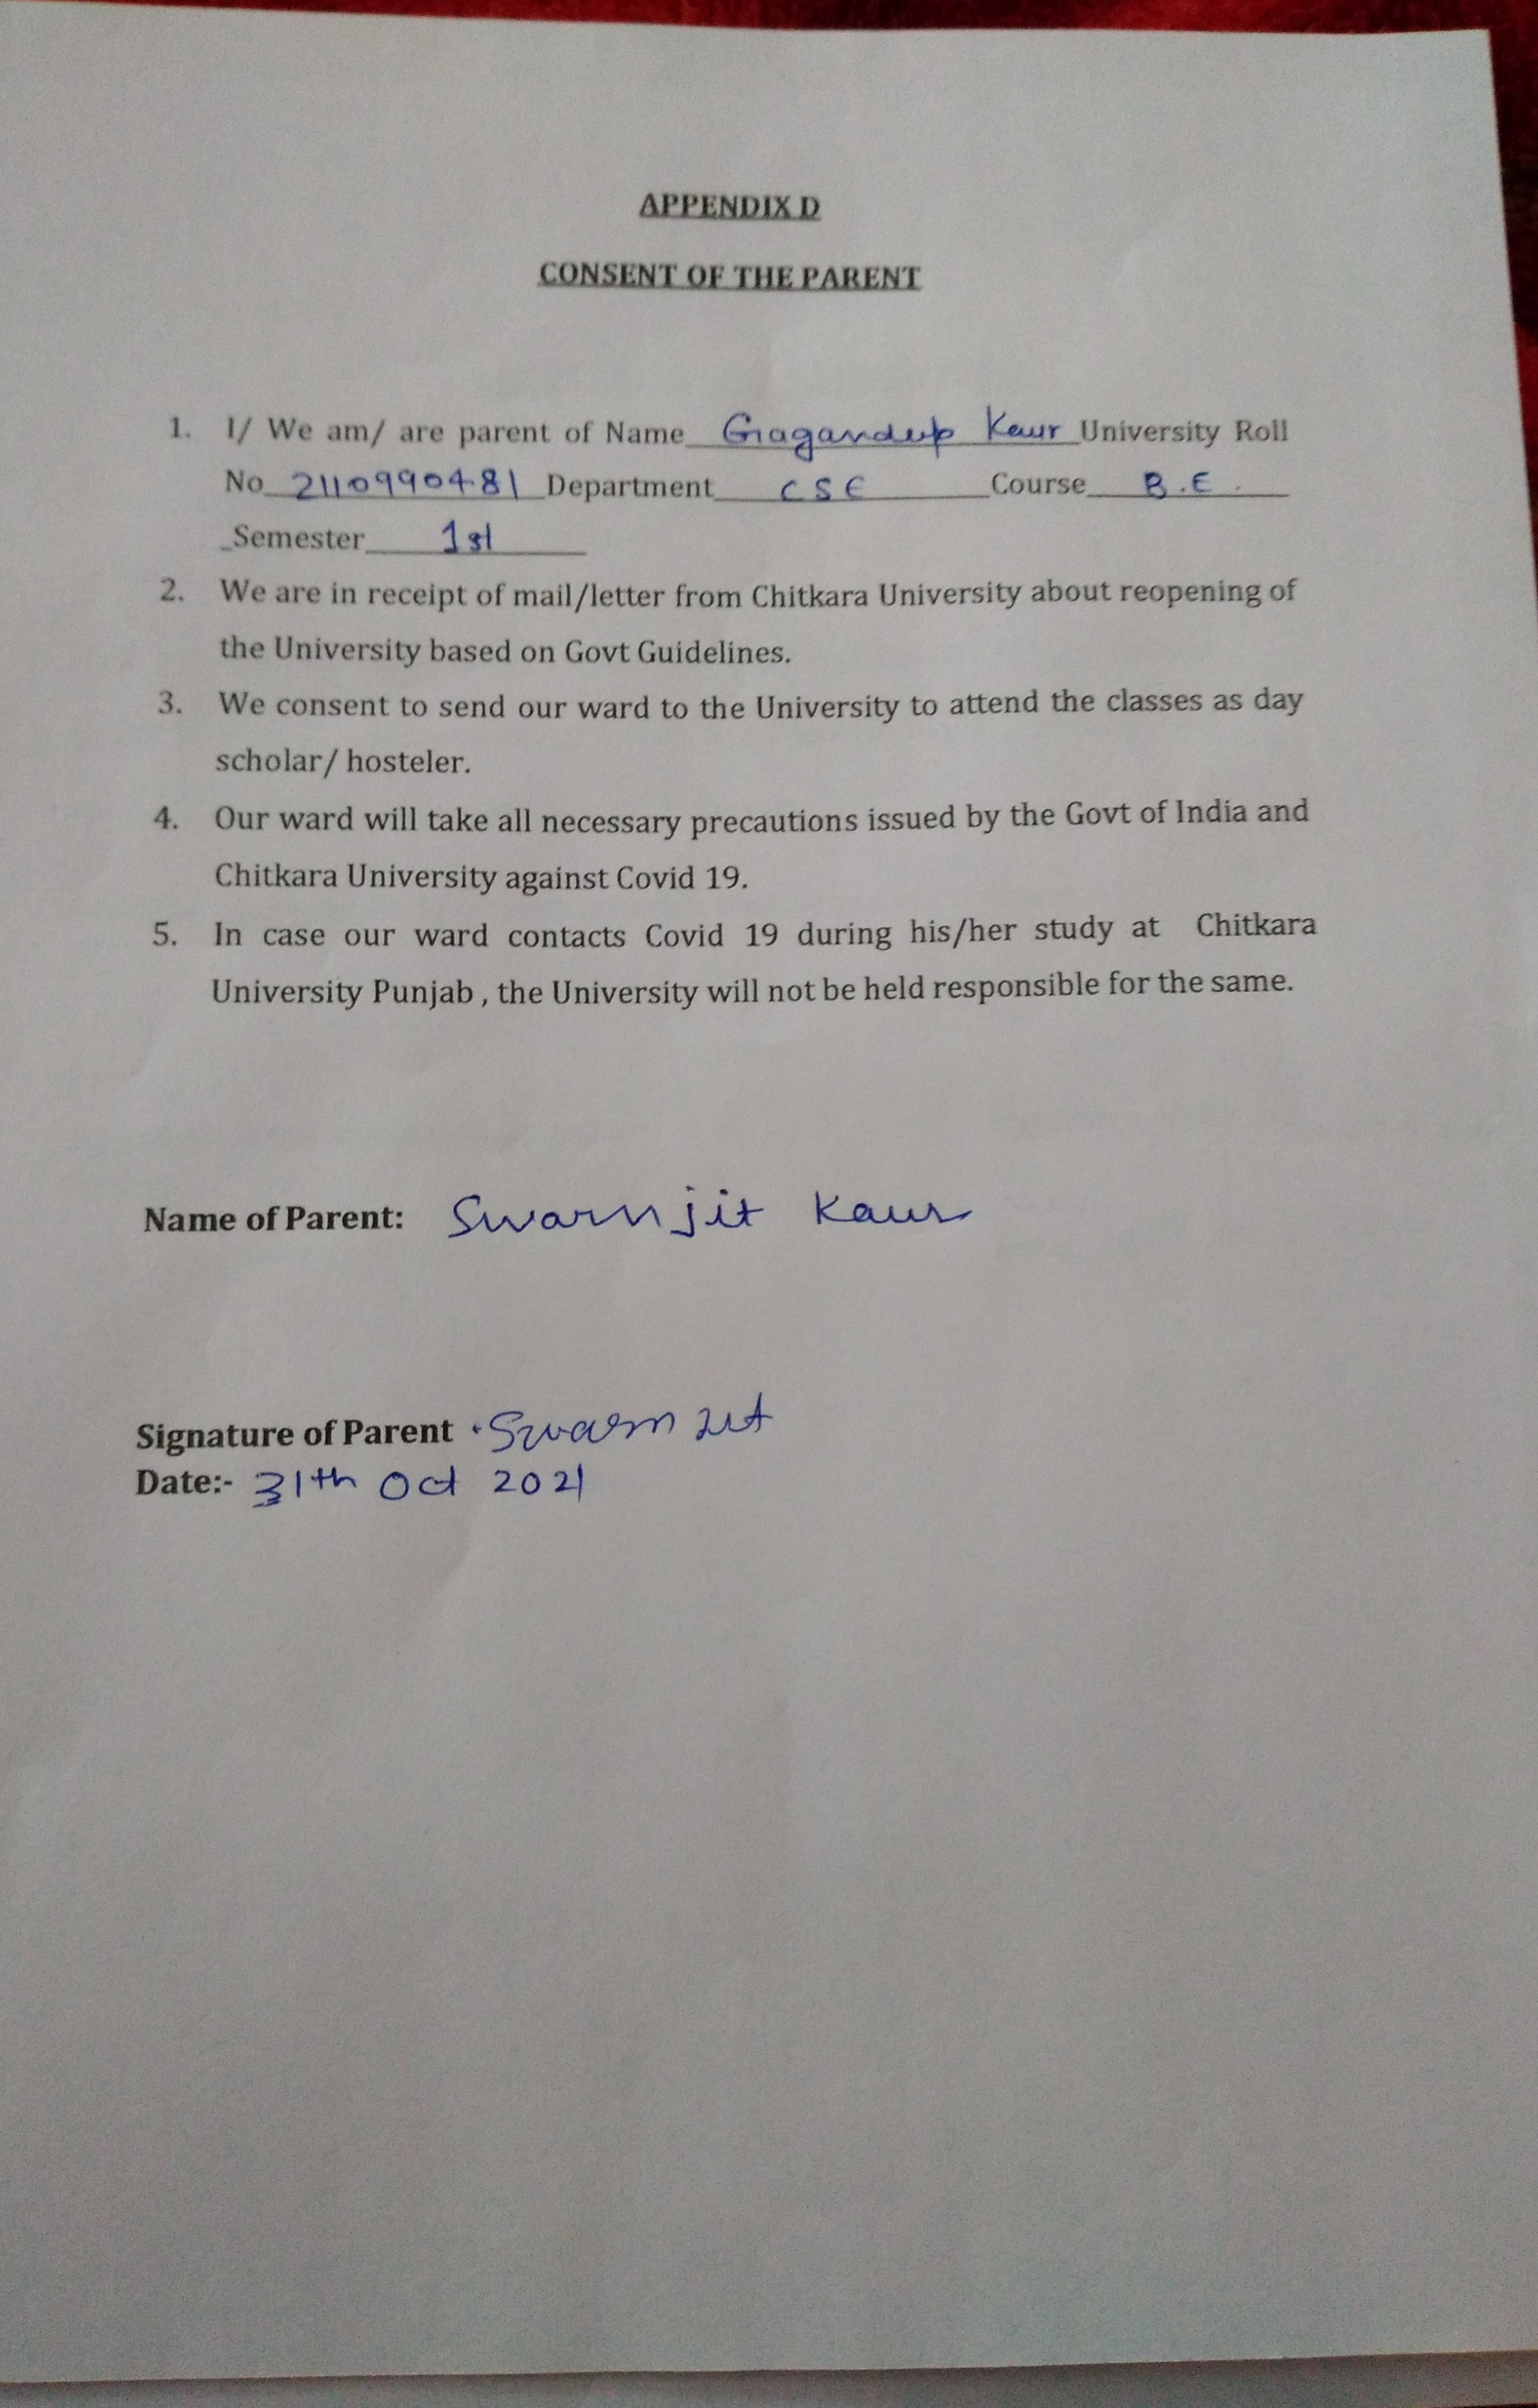 APPENDIX D
CONSENT OF THE PARENT
1. I/ We am/ are parent of Name Gagandeep Kaur University Roll
No 2110990481 Department CSE Course B.E.
Semester 1st
2. We are in receipt of mail/letter from Chitkara University about reopening of
the University based on Govt Guidelines.
3. We consent to send our ward to the University to attend the classes as day
scholar/ hosteler.
4. Our ward will take all necessary precautions issued by the Govt of India and
Chitkara University against Covid 19.
5. In case our ward contacts Covid 19 during his/her study at Chitkara
University Punjab , the University will not be held responsible for the same.
Name of Parent: Swarnjit Kaur
Signature of Parent Swarn jit
Date:- 31th Oct 2021